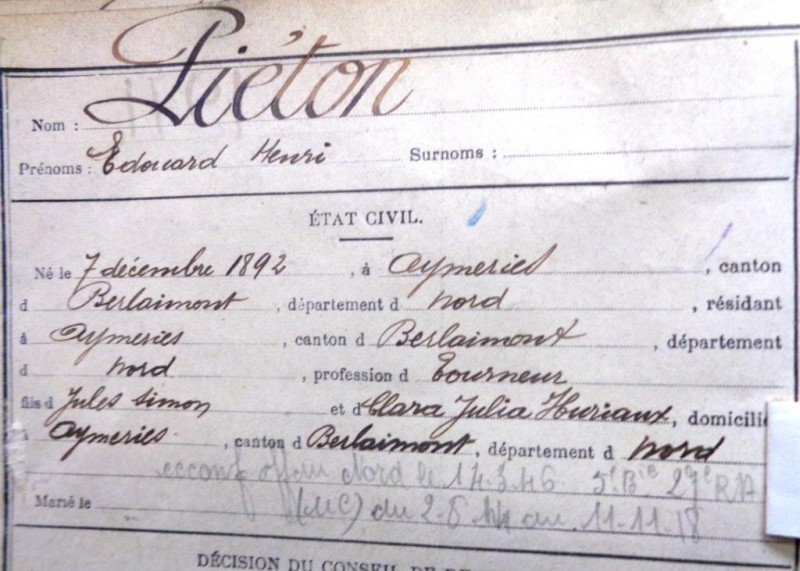 Piéton
Nom :
Prénoms : Edouard Henri Surnoms :
ÉTAT CIVIL.
Né le 7 décembre 1892, à Aymeries, canton
d Berlaimont, département d Nord, résidant
à Aymeries, canton d Berlaimont, département
d Nord, profession d Tourneur
fils d Jules Simon et d Clara Julia Huriaux, domicilié
à Aymeries, canton d Berlaimont, département d Nord
Nord le 14.3.46 5e Bie 27e RA
Marié le du 2-8 au 11-11-18
DÉCISION DU CONSEIL DE